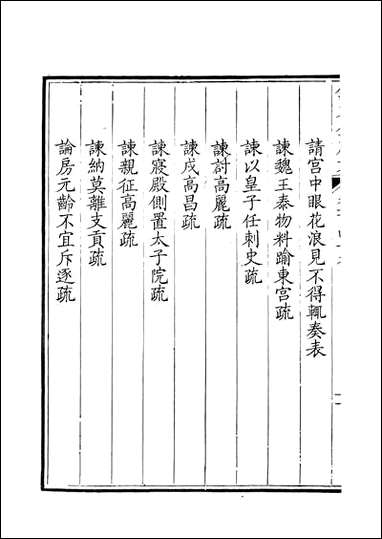 請宫中眼花浪見不得輒奏表
諫魏王泰物料踰東宫疏
諫以皇子任刺史疏
諫討高麗疏
諫戍高昌疏
諫寢殿側置太子院疏
諫親征高麗疏
諫納莫離支貢疏
論房元齡不宜斥逐疏